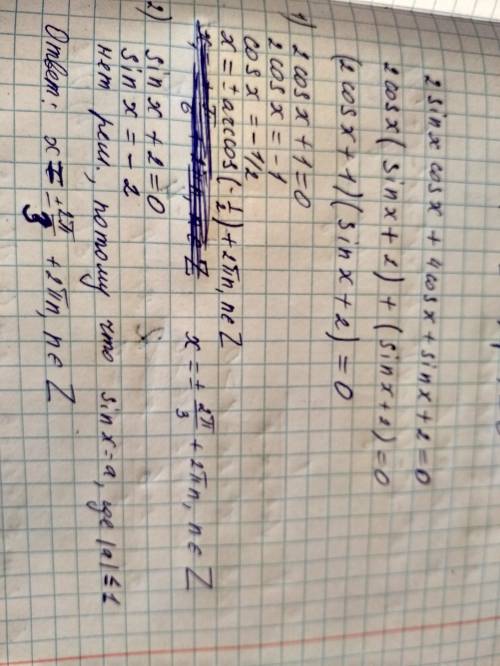 2 sin x cos x + 4 cos x + sin x + 2 = 0
2 cos x (sin x + 2) + (sin x + 2) = 0
(2 cos x + 1)(sin x + 2) = 0
1) 2 cos x + 1 = 0
2 cos x = -1
cos x = -1/2
x = ± arccos(-1/2) + 2πn, n ∈ Z
x = ± 2π/3 + 2πn, n ∈ Z
2) sin x + 2 = 0
sin x = -2
нет реш., потому что sin x = a, где |a| ≤ 1
Ответ: x = ± 2π/3 + 2πn, n ∈ Z